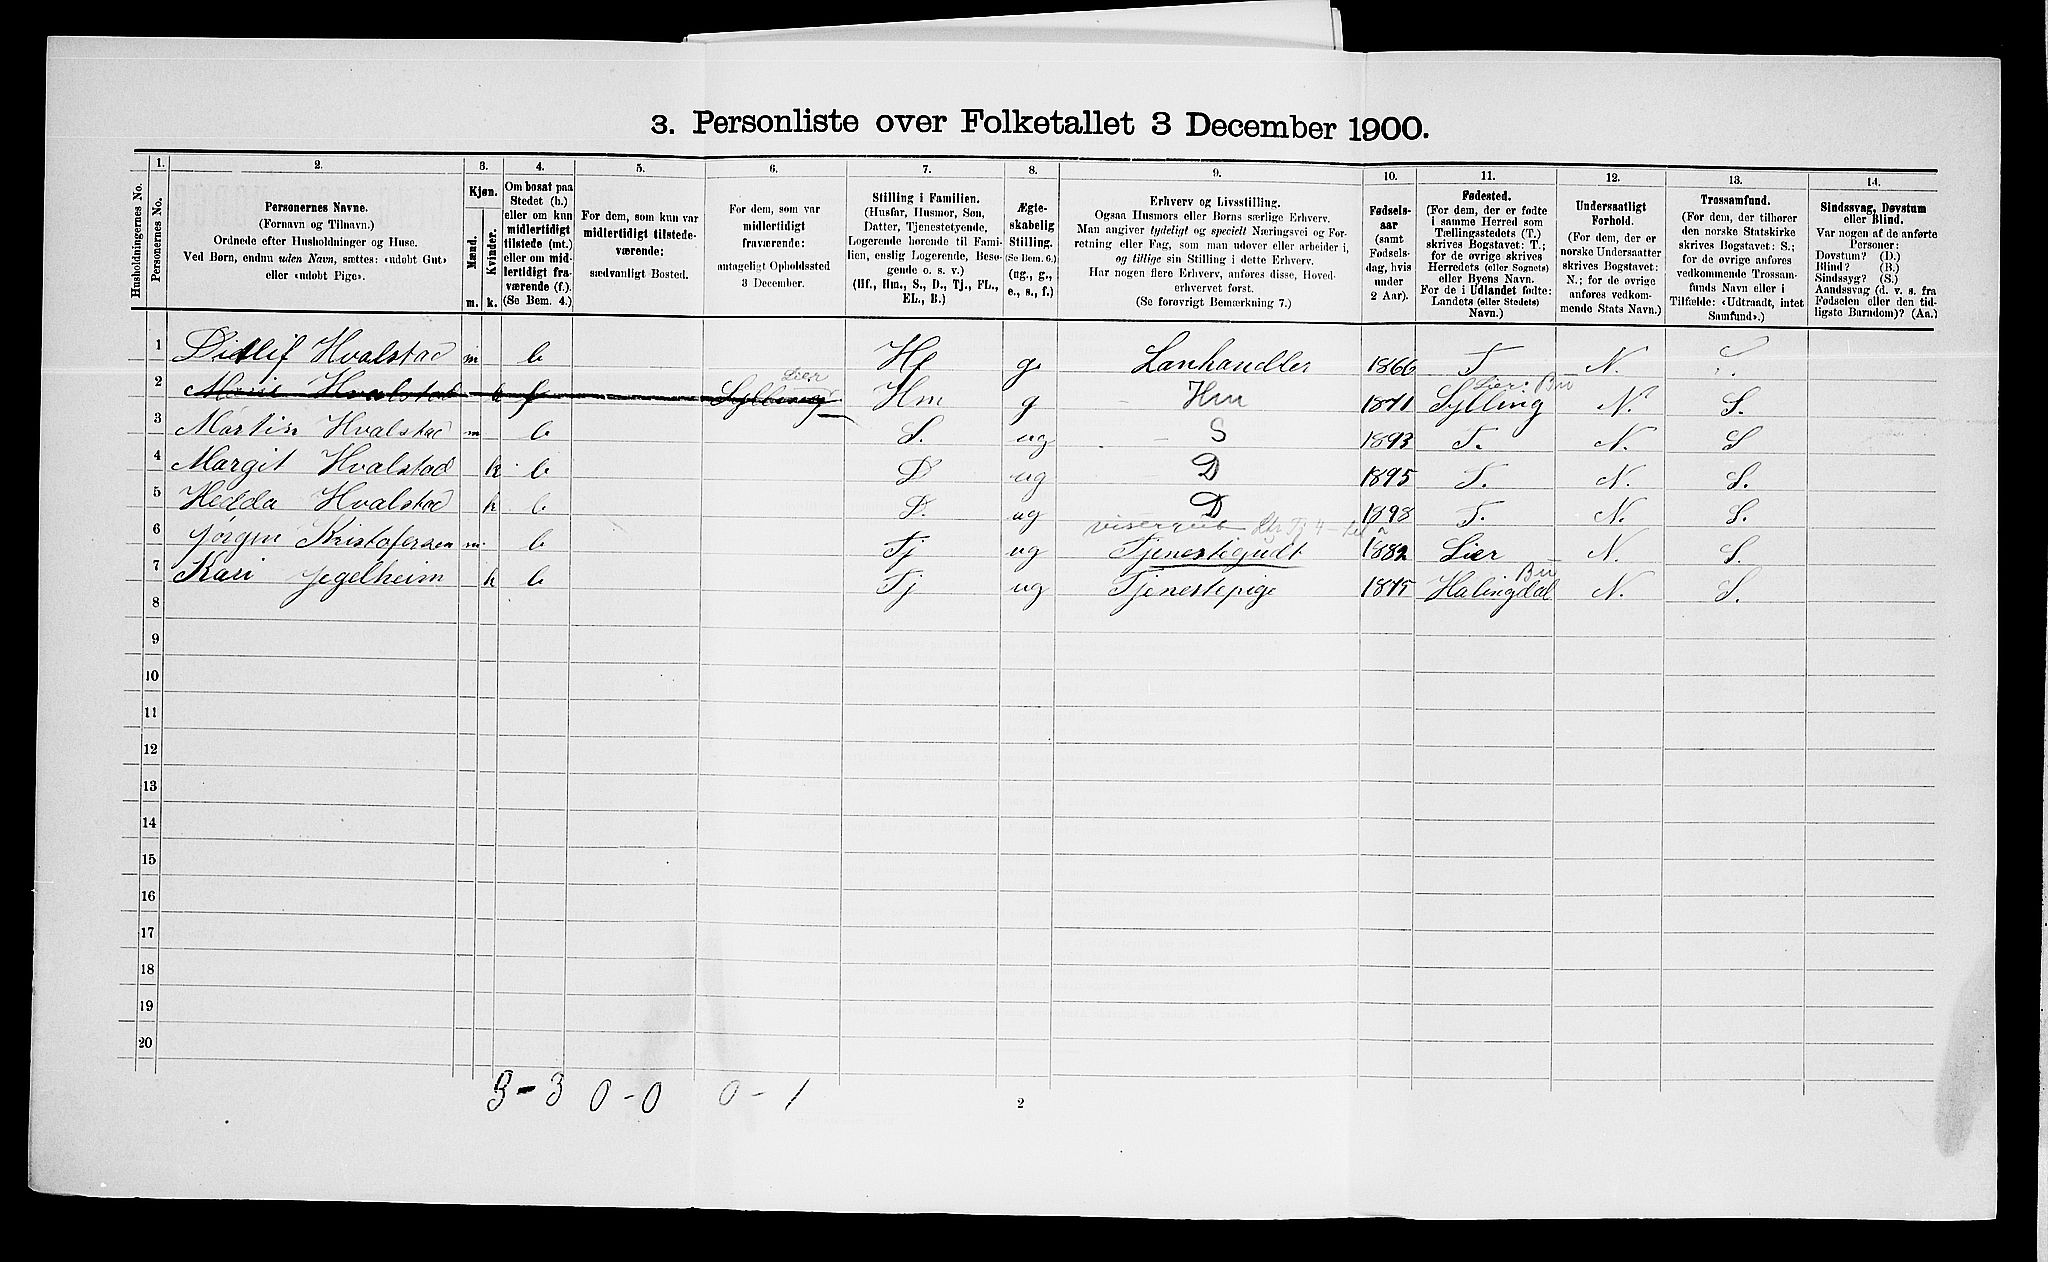 3. Personliste over Folketallet 3 December 1900.
Husholdningernes No.
1. Personernes No.
2. Personernes Navne. (Fornavn og Tilnavn.) Ordnede efter Husholdninger og Huse. Ved Børn, endnu uden Navn, sættes: «udøbt Gut» eller «udøbt Pige».
3. Kjøn. Mænd. m. Kvinder. k.
4. Om bosat paa Stedet (b.) eller om kun midlertidigt tilstede (mt.) eller om midlertidigt fraværende (f.). (Se Bem. 4.)
5. For dem, som kun var midlertidigt tilstedeværende: sædvanligt Bosted.
6. For dem, som var midlertidigt fraværende: antageligt Opholdssted 3 December.
7. Stilling i Familien. (Husfar, Husmor, Søn, Datter, Tjenestetyende, Logerende hørende til Familien, enslig Logerende, Besøgende o. s. v.) (Hf., Hm., S., D., Tj., FL., EL., B.)
8. Ægteskabelig Stilling. (Se Bem. 6.) (ug., g., e., s., f.)
9. Erhverv og Livsstilling. Ogsaa Husmors eller Børns særlige Erhverv. Man angiver tydeligt og specielt Næringsvei og Forretning eller Fag, som man udover eller arbeider i, og tillige sin Stilling i dette Erhverv. Har nogen flere Erhverv, anføres disse, Hovederhvervet først. (Se forøvrigt Bemærkning 7.)
10. Fødselsaar (samt Fødselsdag, hvis under 2 Aar).
11. Fødested. (For dem, der er fødte i samme Herred som Tællingsstedets (T.) skrives Bogstavet: T.; for de øvrige skrives Herredets (eller Sognets) eller Byens Navn. For de i Udlandet fødte: Landets (eller Stedets) Navn.)
12. Undersaatligt Forhold. (For dem, der er norske Undersaatter skrives Bogstavet: N.; for de øvrige anføres vedkommende Stats Navn.)
13. Trossamfund. (For dem, der tilhører den norske Statskirke skrives Bogstavet: S.; for de øvrige anføres vedkommende Trossamfunds Navn eller i Tilfælde: «Udtraadt, intet Samfund».)
14. Sindssvag, Døvstum eller Blind. Var nogen af de anførte Personer: Døvstum? (D.) Blind? (B.) Sindssyg? (S.) Aandssvag (d. v. s. fra Fødselen eller den tidligste Barndom)? (Aa.)
1 Ditlif Hvalstad m b Hf g. Lanhandler 1866 T N. S.
Lier Lier. Bu
2 Marie Hvalstad k f Sylling Hm g - Hm 1871 Sylling N. S.
3 Martin Hvalstad m b S. ug - S 1893 T. N. S
4 Margit Hvalstad k b D ug D 1895 T. N. S.
5 Hedda Hvalstad k b D. ug D 1898 T. N. S.
visergut
6 Jørgen Kristofersen m. b Tj ug Tjenestegudt 1882 Lier N. S.
Bu
7 Kari Jegelheim k b Tj ug Tjenestepige 1875 Halingdal N. S.
8
9
10
11
12
13
14
15
16
17
18
19
20
3-3 0-0 0-1
2